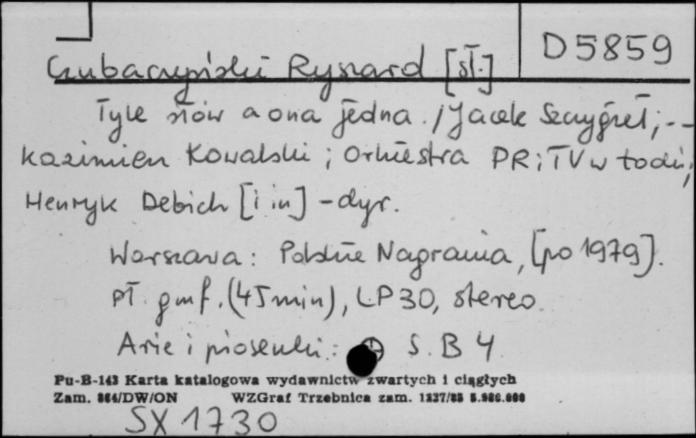 D5859
Czubaczyński Ryszard [sł.]
Tyle słów a ona jedna. / Jacek Szczygieł; --
Kazimierz Kowalski; Orkiestra PR i TV w Łodzi;
Henryk Debich [i in] - dyr.
Warszawa: Polskie Nagrania, [po 1979].
Pł. gmf. (45 min), LP30, stereo.
Arie i piosenki: S. B 4
Pu-B-143 Karta katalogowa wydawnictw zwartych i ciągłych
Zam. 864/DW/ON WZGraf Trzebnica zam. 1227/85 5.986.000
SX 1730